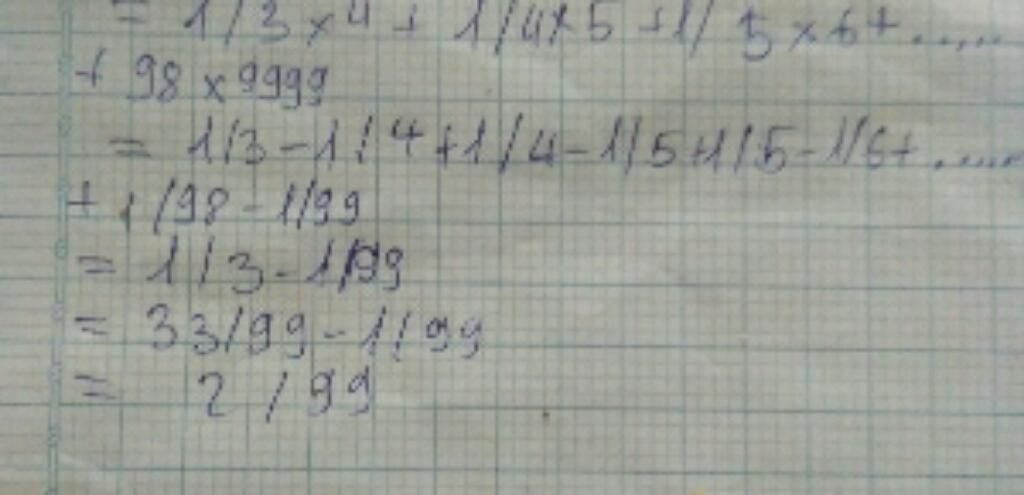 = 1/3×4 + 1/4×5 +1/ 5×6+......
+ 98 × 9999
= 1/3-1/4+1/4-1/5+1/5-1/6+......
+ 1/98-1/99
= 1/3-1/99
= 33/99-1/99
= 2/99